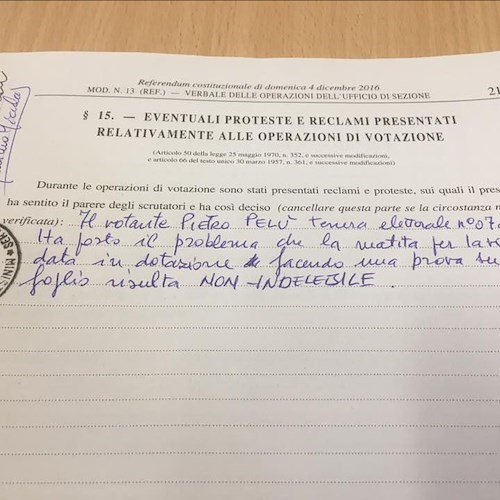 Referendum costituzionale di domenica 4 dicembre 2016
MOD. N. 13 (REF.) — VERBALE DELLE OPERAZIONI DELL'UFFICIO DI SEZIONE
21
§ 15. — EVENTUALI PROTESTE E RECLAMI PRESENTATI
RELATIVAMENTE ALLE OPERAZIONI DI VOTAZIONE
(Articolo 50 della legge 25 maggio 1970, n. 352, e successive modificazioni,
e articolo 66 del testo unico 30 marzo 1957, n. 361, e successive modificazioni)
Durante le operazioni di votazione sono stati presentati reclami e proteste, sui quali il pres
ha sentito il parere degli scrutatori e ha così deciso (cancellare questa parte se la circostanza n
verificata): Il votante PIETRO PELÙ tessera elettorale n° 07
Ha posto il problema che la matita per
data in dotazione facendo una prova su
foglio risulta NON-INDELEBILE.
MINIS